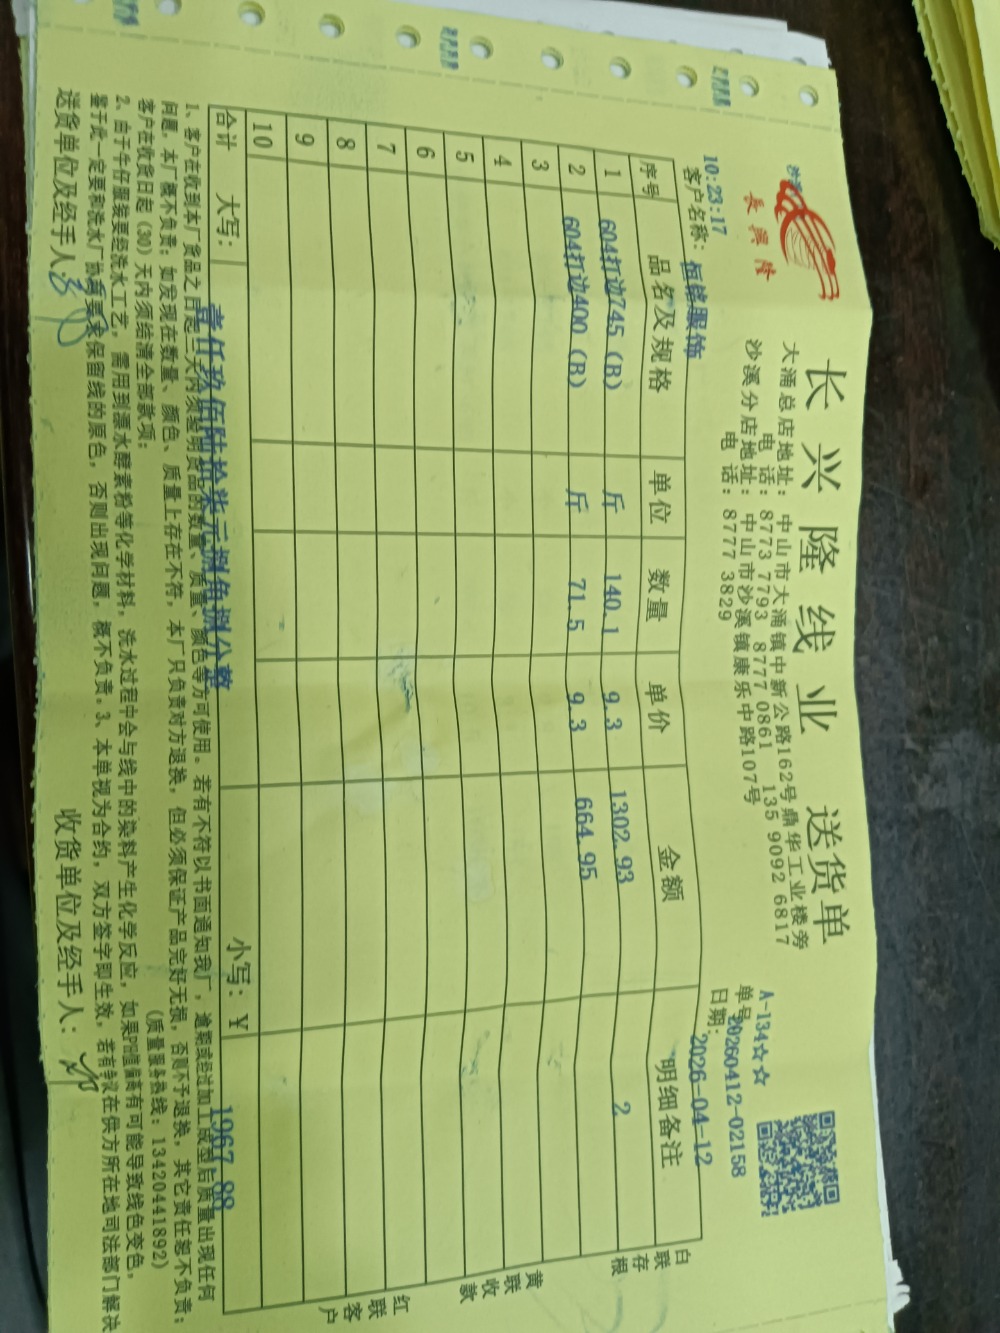 长兴隆
长兴隆线业 送货单
大涌总店地址：中山市大涌镇中新公路162号鼎华工业楼旁
电话：8773 7793 8777 0861 135 9092 6817
沙溪分店地址：中山市沙溪镇康乐中路107号
电话：8777 3829
A-134☆☆
单号20260412-02158
日期：2026-04-12
10:23:17
客户名称：恒铭服饰
序号 品名及规格 单位 数量 单价 金额 明细备注
1 604打边745（B） 斤 140.1 9.3 1302.93 2
2 604打边400（B） 斤 71.5 9.3 664.95
3
4
5
6
7
8
9
10
合计 大写：壹仟玖佰陆拾柒元捌角捌分整 小写：￥1967.88
白联存根
黄联收款
红联客户
1、客户在收到本厂货品之日起三天内须验明货品的数量、质量、颜色等方可使用。若有不符以书面通知我厂，逾期或经过加工成型后质量出现任何
问题，本厂概不负责；如发现在数量、颜色、质量上存在不符，本厂只负责对方退换，但必须保证产品完好无损，否则不予退换，其它责任恕不负责；
客户在收货日起（30）天内须给清全部款项； （质量服务热线：13420441892）
2、由于牛仔服装要经洗水工艺，需用到漂水酵素粉等化学材料，洗水过程中会与线中的染料产生化学反应，如果PH值偏高有可能导致线色变色，
鉴于此一定要和洗水厂协调要求保留线的原色，否则出现问题，概不负责。3、本单视为合约，双方签字即生效，若有争议在供方所在地司法部门解决
送货单位及经手人： 收货单位及经手人：